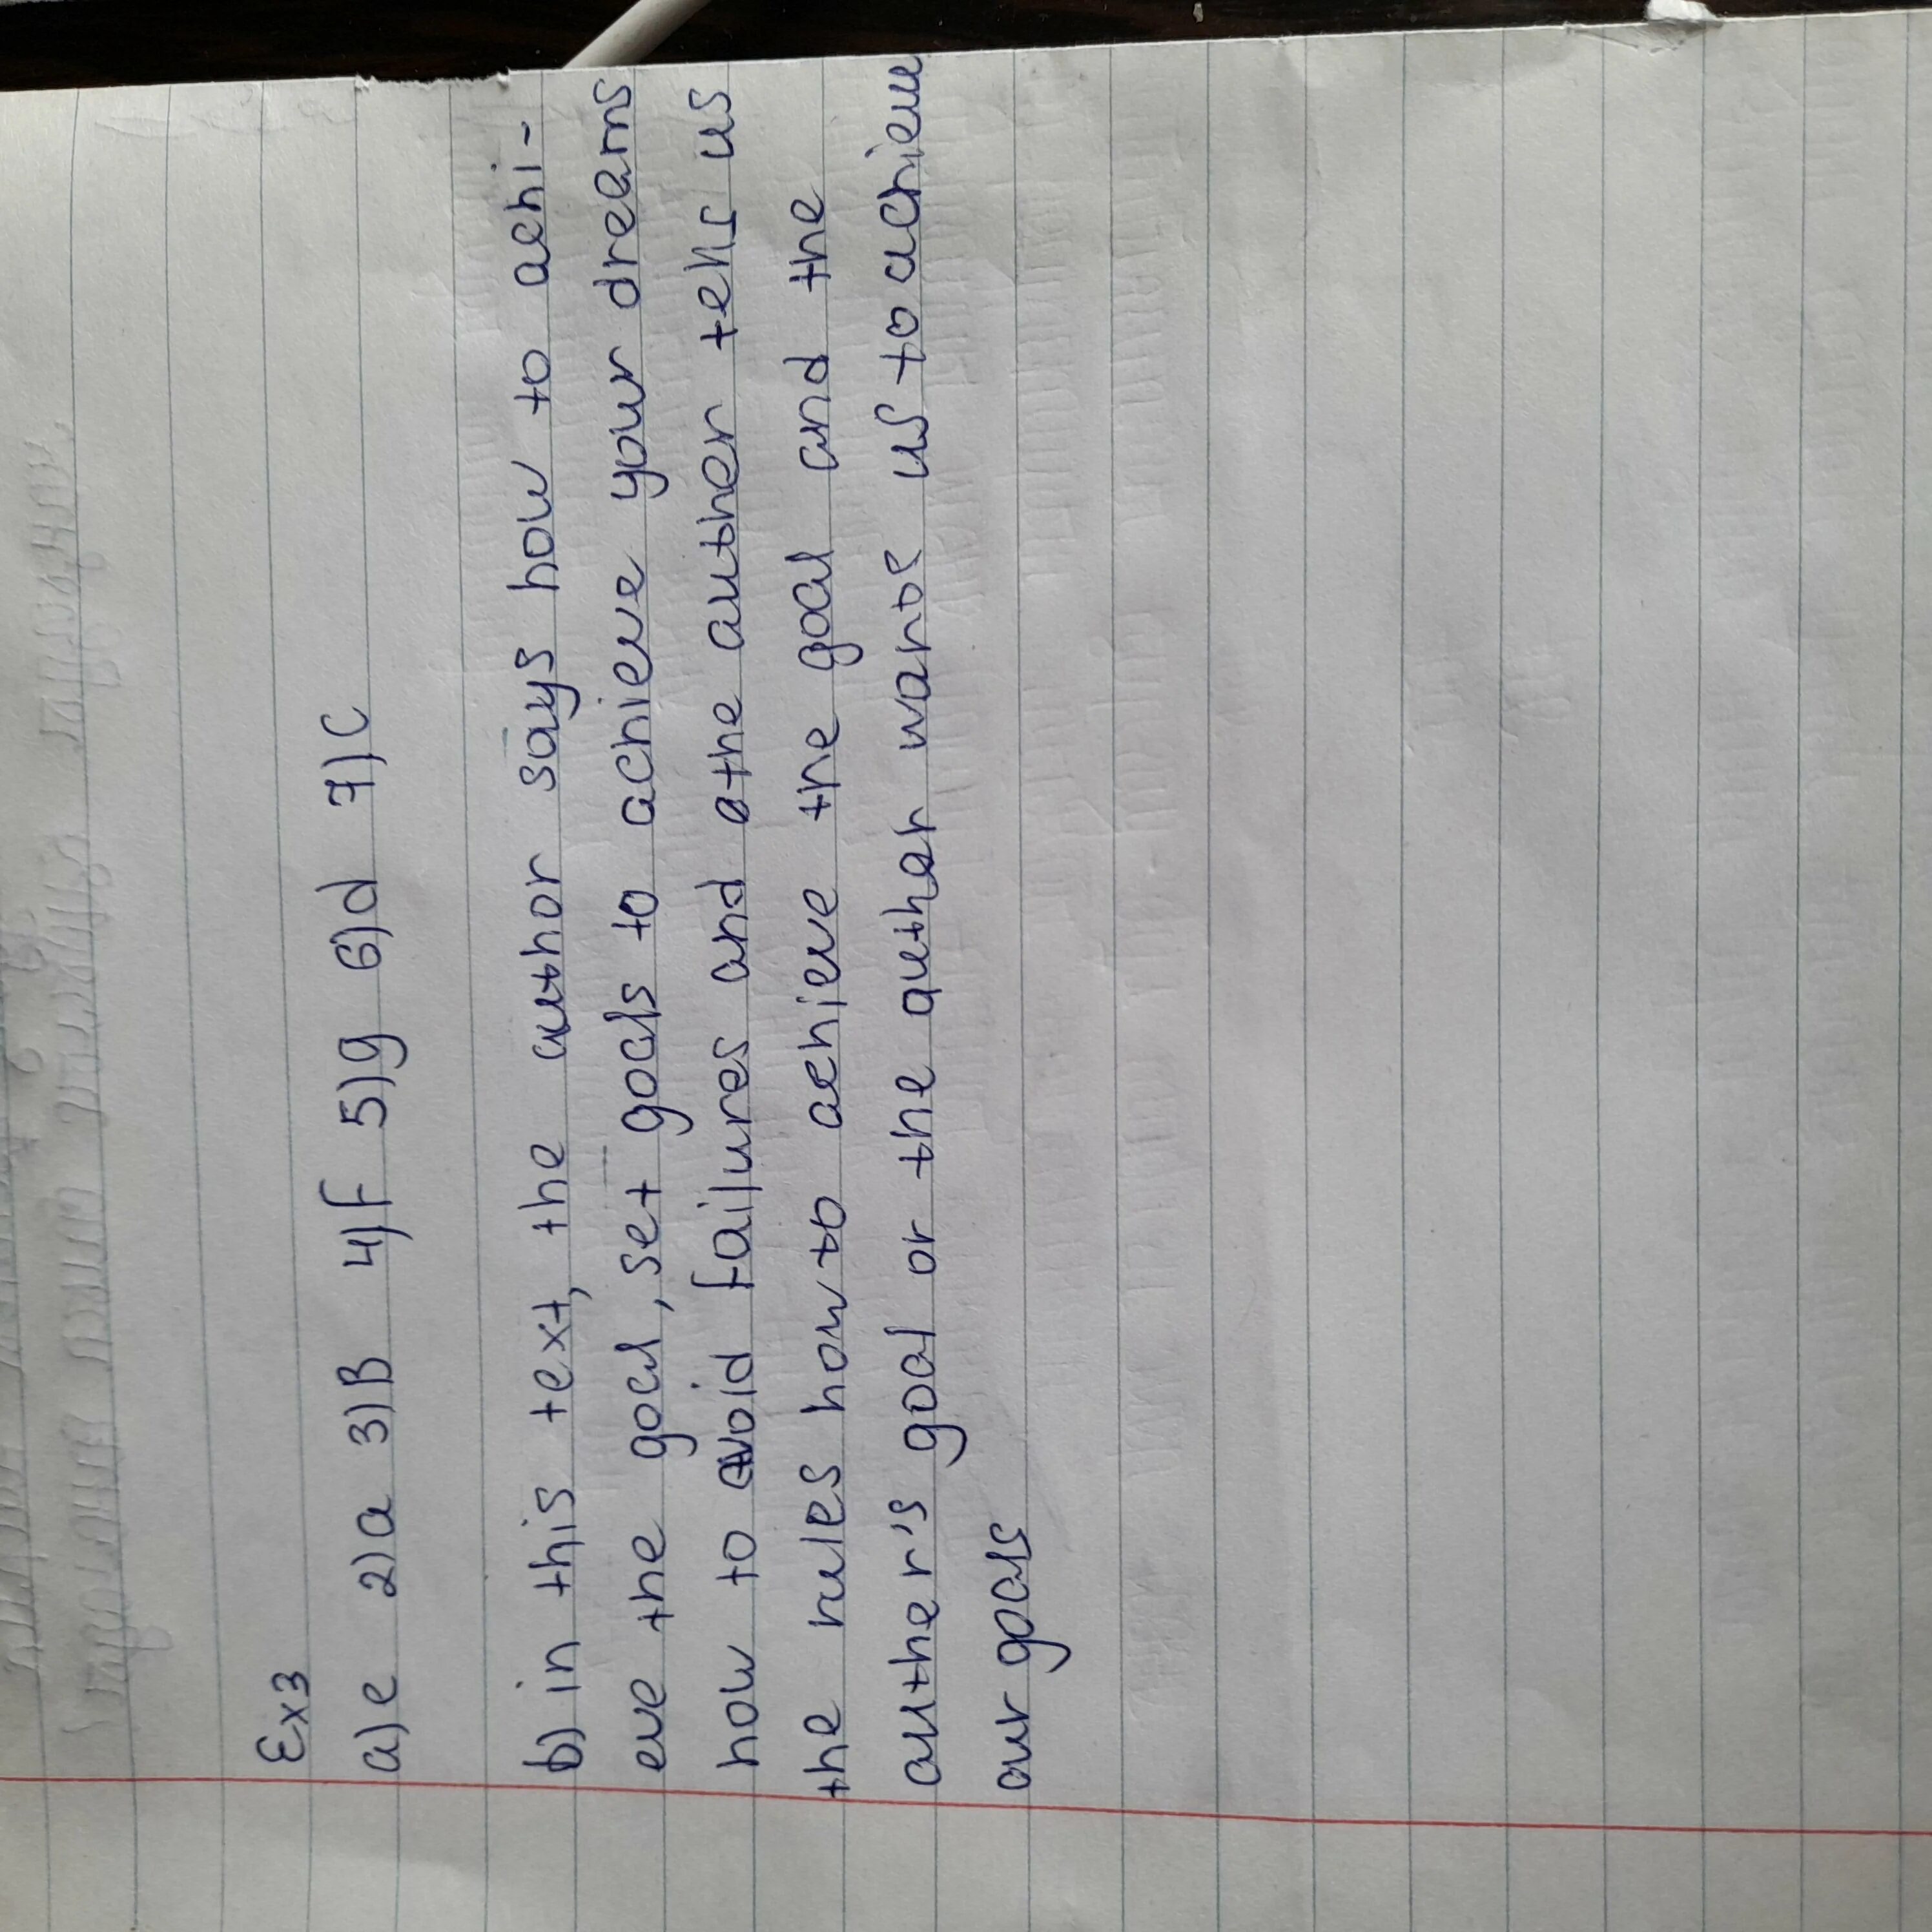 Ex3
a)e 2)a 3)B 4)f 5)g 6)d 7)c
b) in this text, the author says how to achi-
eve the goal, set goals to achieve your dreams
how to avoid failures and the auther tells us
the rules how to achieve the goal and the
auther's goal or the auther wants us to achieve
our goals